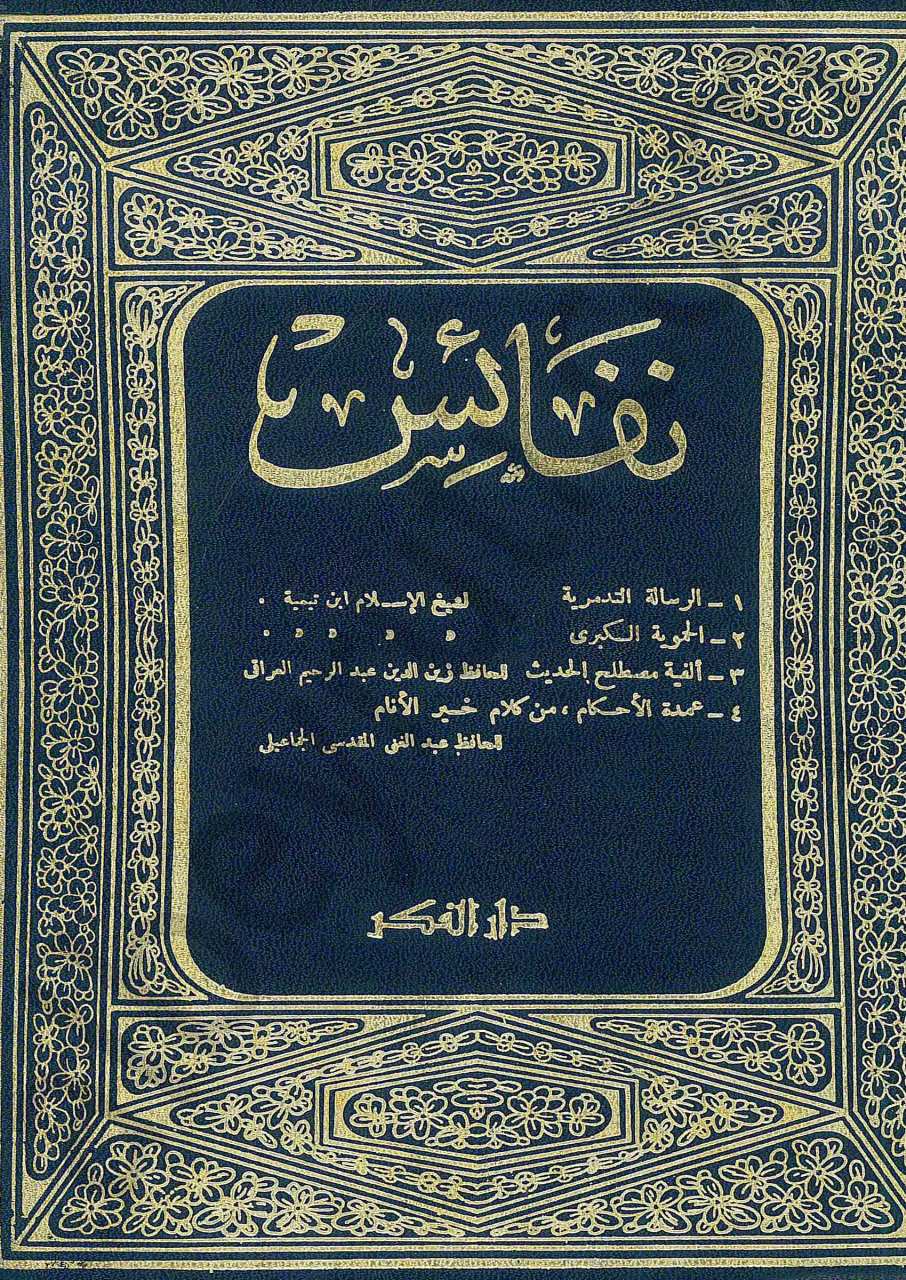 نفائس
١ ـ الرسالة التدمرية لشيخ الإسلام ابن تيمية .
٢ ـ الحموية الكبرى » » » » »
٣ ـ ألفية مصطلح الحديث للحافظ زين الدين عبد الرحيم العراقى
٤ ـ عمدة الأحكام ، من كلام خير الأنام
للحافظ عبد الغنى المقدسى الجماعيلى
دار الفكر